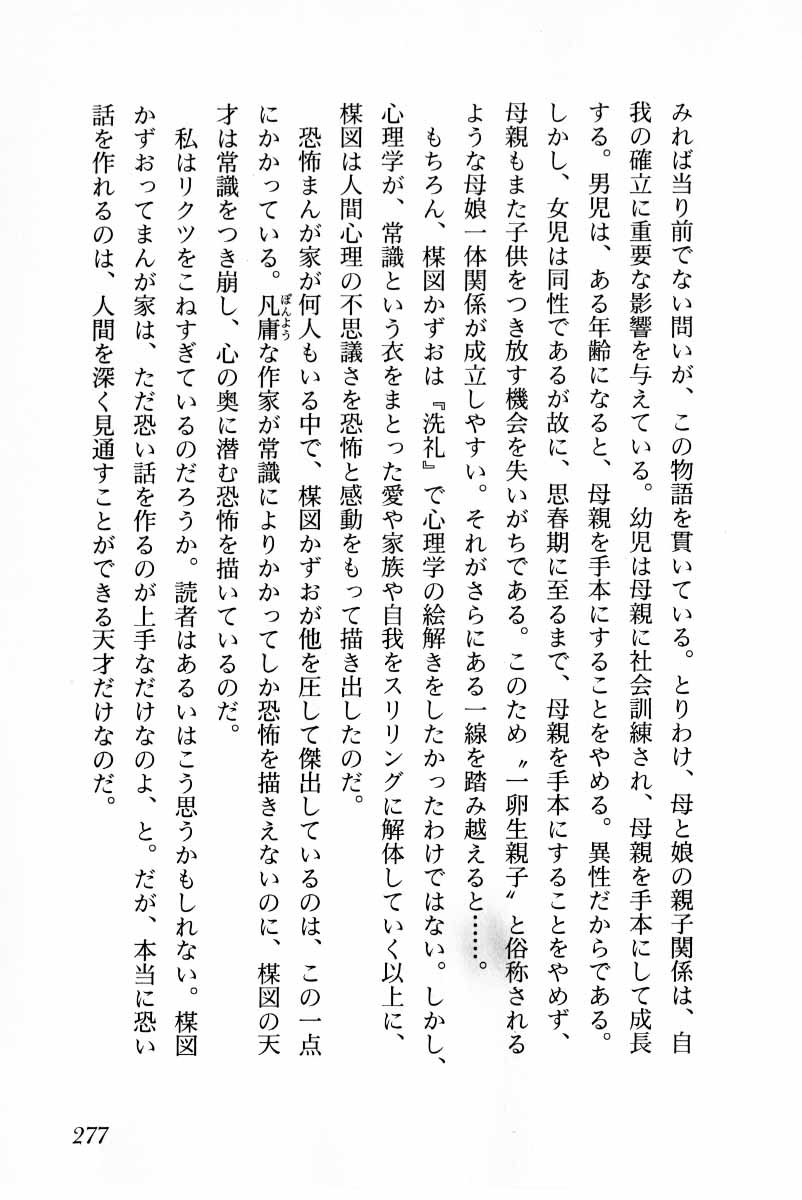 みれば当り前でない問いが、この物語を貫いている。とりわけ、母と娘の親子関係は、自
我の確立に重要な影響を与えている。幼児は母親に社会訓練され、母親を手本にして成長
する。男児は、ある年齢になると、母親を手本にすることをやめる。異性だからである。
しかし、女児は同性であるが故に、思春期に至るまで、母親を手本にすることをやめず、
母親もまた子供をつき放す機会を失いがちである。このため〝一卵生親子〟と俗称される
ような母娘一体関係が成立しやすい。それがさらにある一線を踏み越えると……。
もちろん、楳図かずおは『洗礼』で心理学の絵解きをしたかったわけではない。しかし、
心理学が、常識という衣をまとった愛や家族や自我をスリリングに解体していく以上に、
楳図は人間心理の不思議さを恐怖と感動をもって描き出したのだ。
恐怖まんが家が何人もいる中で、楳図かずおが他を圧して傑出しているのは、この一点
にかかっている。凡庸な作家が常識によりかかってしか恐怖を描きえないのに、楳図の天
ぼんよう
才は常識をつき崩し、心の奥に潜む恐怖を描いているのだ。
私はリクツをこねすぎているのだろうか。読者はあるいはこう思うかもしれない。楳図
かずおってまんが家は、ただ恐い話を作るのが上手なだけなのよ、と。だが、本当に恐い
話を作れるのは、人間を深く見通すことができる天才だけなのだ。
277